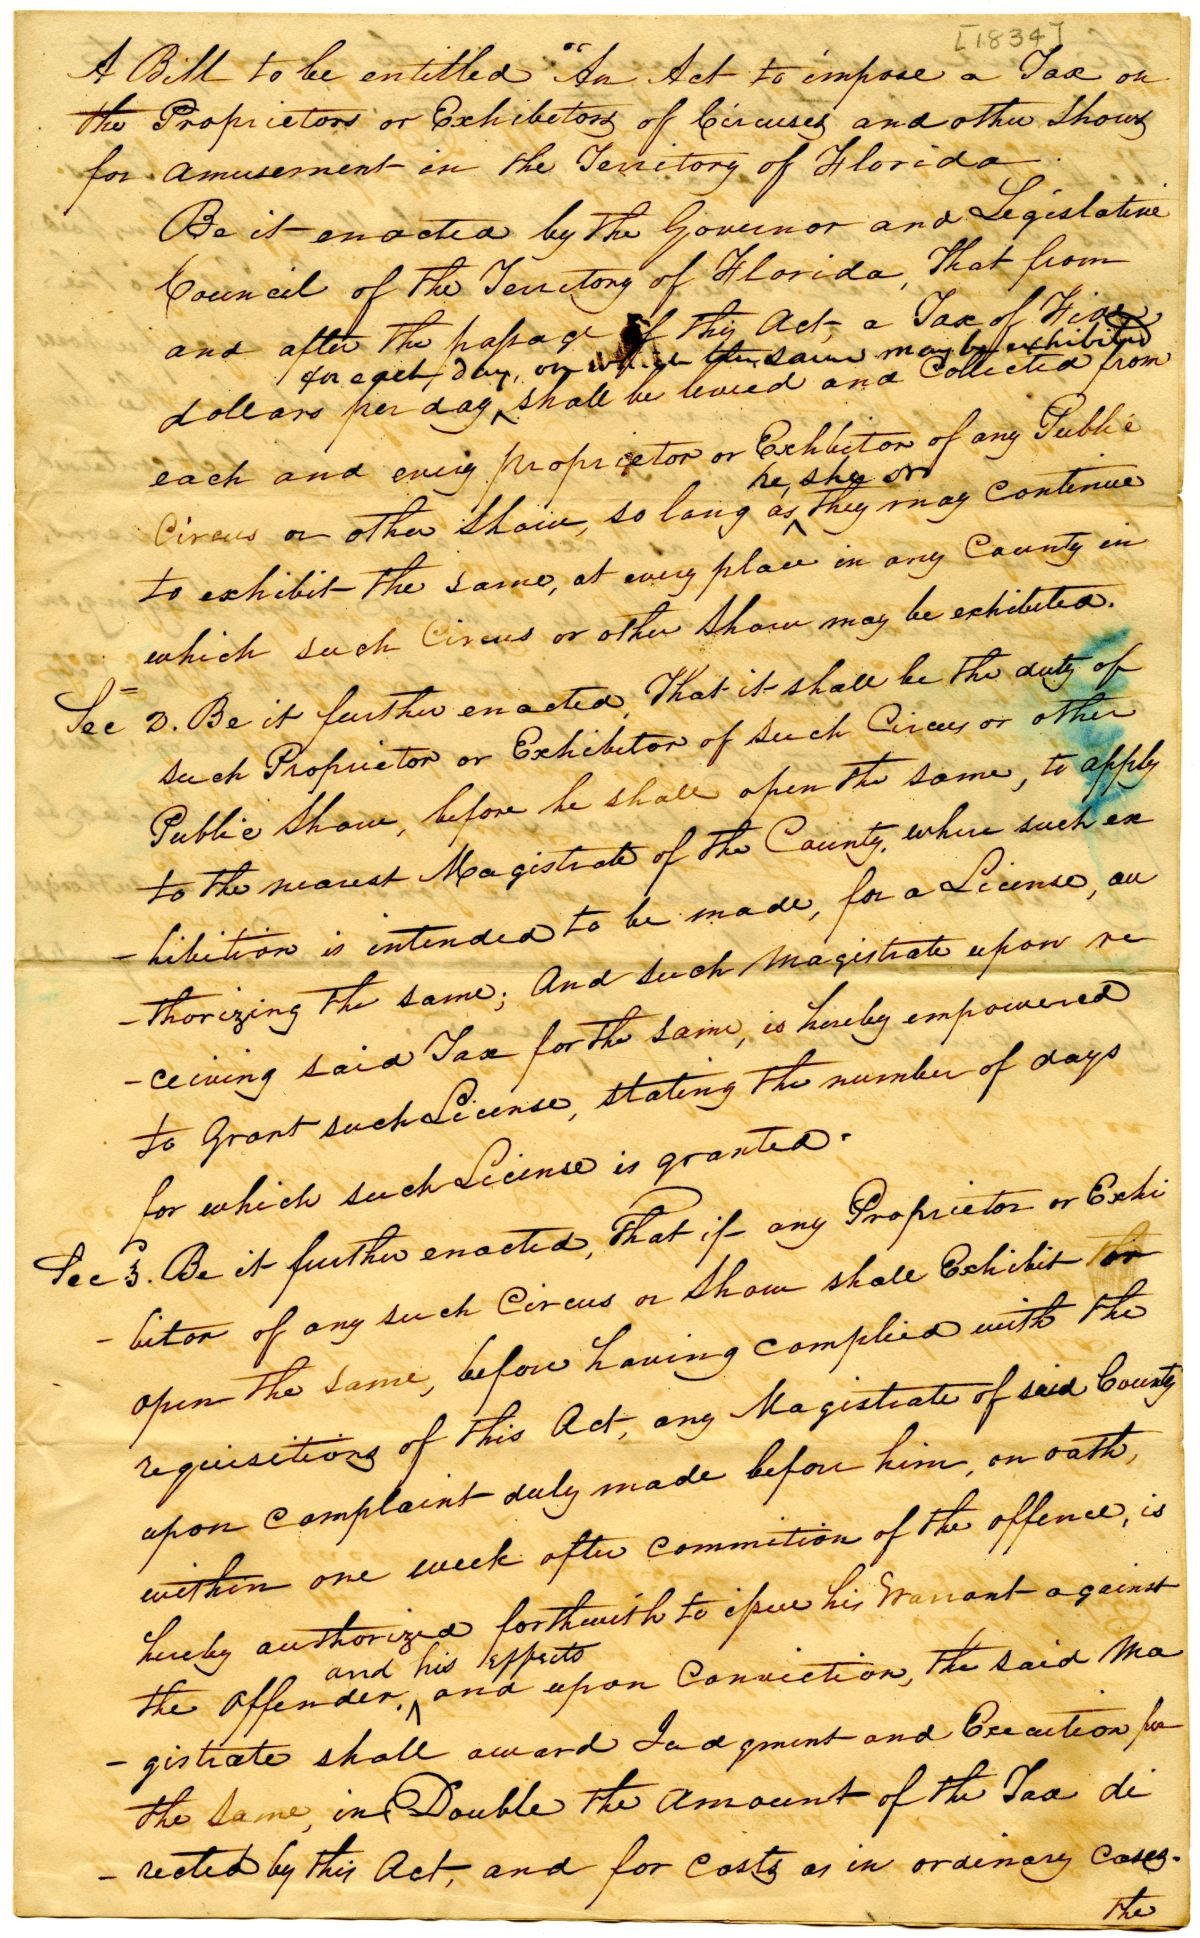 [1834]
A Bill to be entitled "An Act to impose a Tax on
the Proprietors or Exhibitors of Circuses and other Shows
for amusement in the Territory of Florida.
Be it enacted by the Governor and Legislative
Council of the Territory of Florida, That from
and after the passage of this Act, a Tax of Five
for each day, on which the same may be exhibited
dollars per day, ^ shall be levied and Collected from
each and every proprietor or Exhibitor of any Public
he, she or
Circus or other Show, so long as ^ they may continue
to exhibit the same, at every place in any County in
which such Circus or other Show may be exhibited.
Sec 2. Be it further enacted, That it shall be the duty of
such Proprietor or Exhibitor of such Circus or other
Public Show, before he shall open the same, to apply
to the nearest Magistrate of the County, where such ex
-hibition is intended to be made, for a License, au
-thorizing the same; And such Magistrate upon re
-ceiving said Tax for the same, is hereby empowered
to Grant such License, stating the number of days
for which such License is granted.
Sec 3. Be it further enacted, That if any Proprietor or Exhi
-bitor of any such Circus or Show shall Exhibit or
open the same, before having complied with the
requisitions of this Act, any Magistrate of said County
upon complaint duly made before him, on oath,
within one week after commition of the offence, is
hereby authorized forthwith to issue his Warrant against
and his effects
the Offender, ^ and upon Conviction, the said Ma
-gistrate shall award Judgment and Execution for
the same, in Double the amount of the Tax di
-rected by this Act, and for costs as in ordinary cases.
the